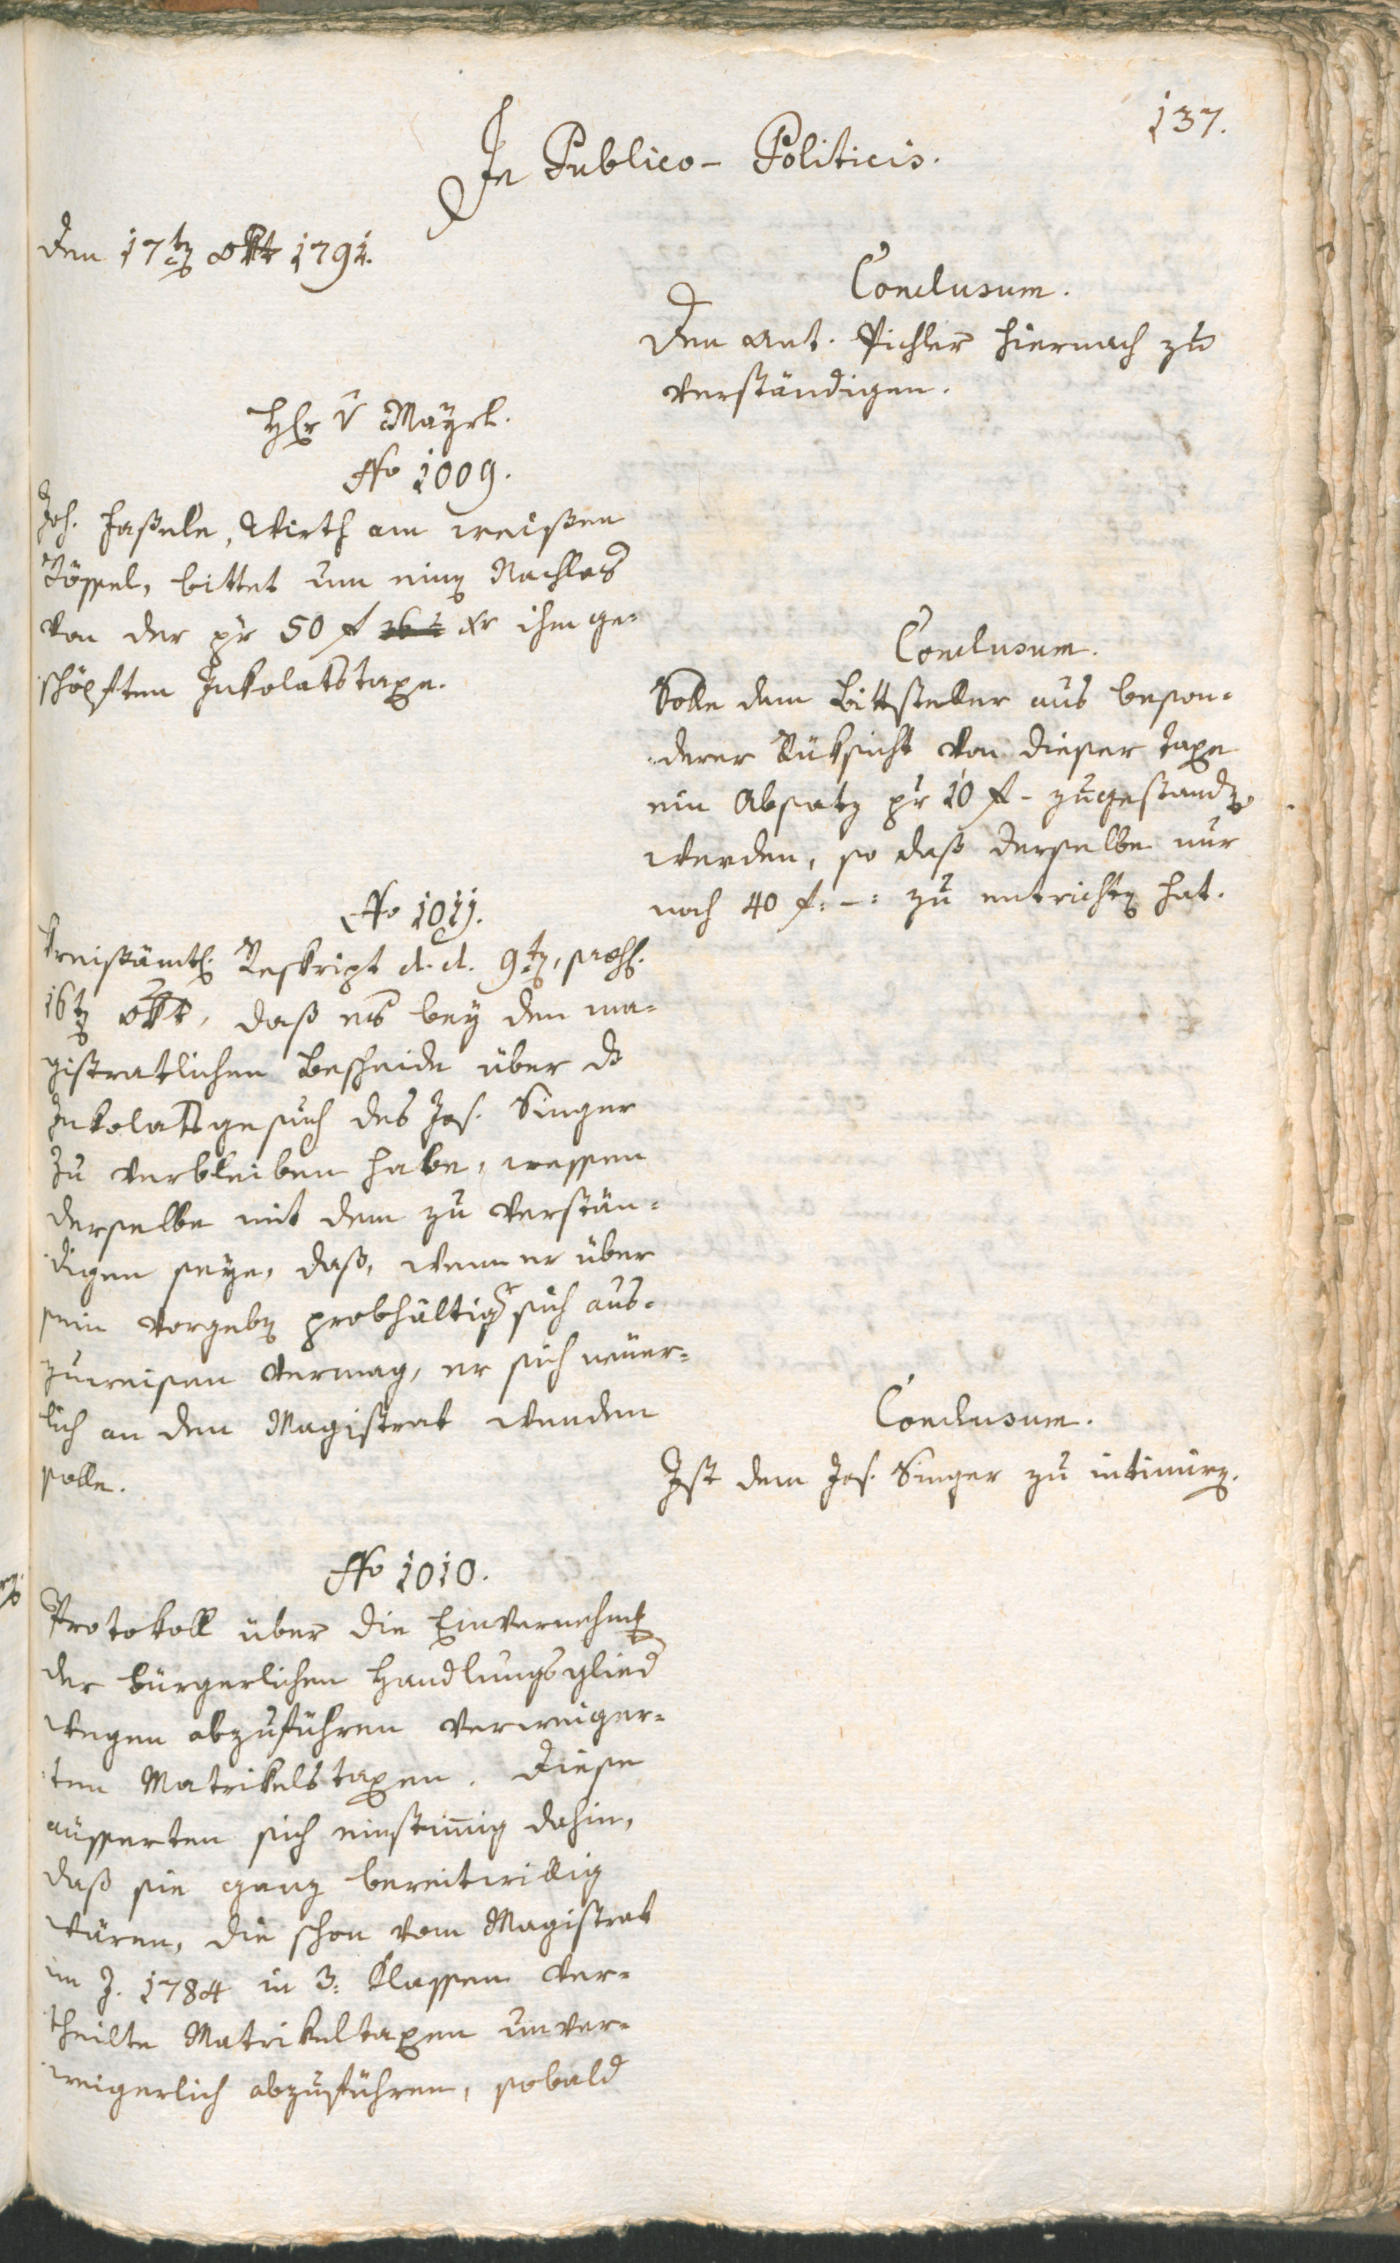 137.
In Publico-Politicis.
Den 17ten 8br 1791.
Conclusum.
Den Ant. Pichler hiernach zu
verständigen.
Hr v Mayrl.
No 1009.
Joh. Haßele, Wirth am weißen
Rössel, bittet um einen Nachlas
von der pr 50 f xr ihm ge-
schöpften Inkolatstaxe.
Conclusum.
Solle dem Bittsteller aus beson-
derer Rüksicht von dieser Taxe
ein Absatz pr 10 f - zugestanden
werden, so daß derselbe nur
noch 40 f: -: zu entrichten hat.
No 1011.
Kreisämtl. Reskript d. d. 9ten, präs.
16ten 8br, daß es bey dem ma-
gistratlichen Bescheide über das
Inkolatsgesuch des Jos. Singer
zu verbleiben habe, wessen
derselbe mit dem zu verstän-
digen seye, daß, wenn er über
sein Vorgeben probhältiger sich aus-
zuweisen vermag, er sich neuer-
lich an den Magistrat wenden
solle.
Conclusum.
Ist dem Jos. Singer zu intimiren.
No 1010.
Protokoll über die Einvernehmung
der bürgerlichen Handlungsglieder
wegen abzuführen verweiger-
ten Matrikelstaxen. Diese
äusserten sich einstimig dahin,
daß sie ganz bereitwillig
wären, die schon vom Magistrat
im J. 1784 in 3: Klassen ver-
theilte Matrikultaxen unver-
weigerlich abzuführen, sobald